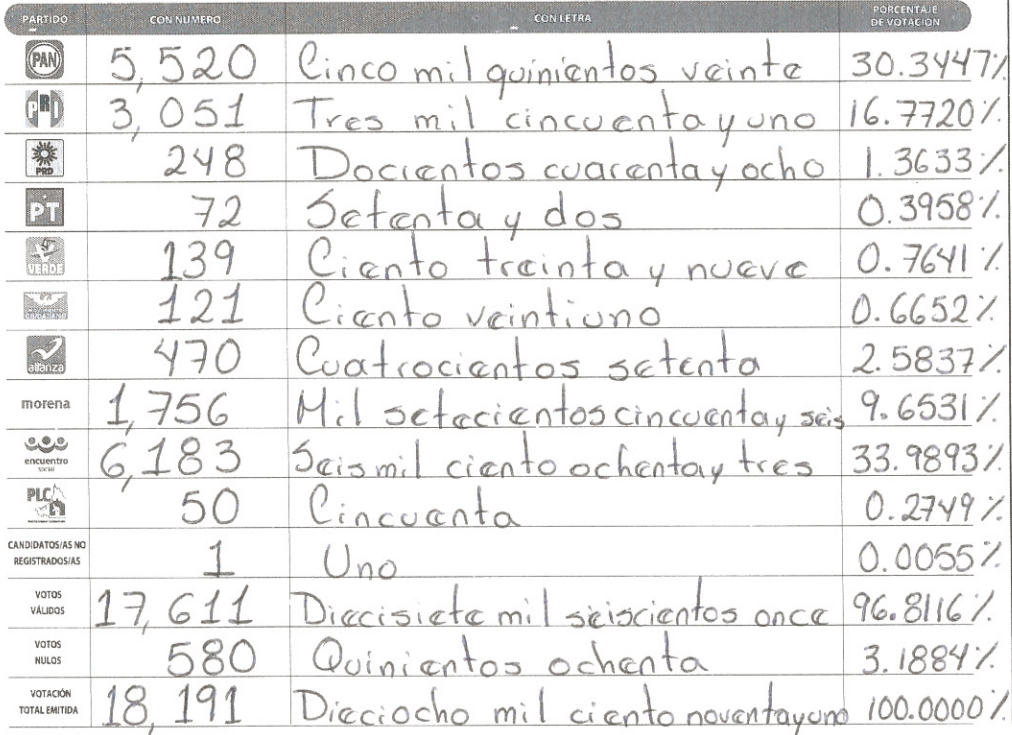 PARTIDO CON NUMERO CON LETRA PORCENTAJE DE VOTACION
PAN 5,520 Cinco mil quinientos veinte 30.3447%
PRI 3,051 Tres mil cincuenta y uno 16.7720%
PRD 248 Docientos cuarenta y ocho 1.3633%
PT 72 Setenta y dos 0.3958%
VERDE 139 Ciento treinta y nueve 0.7641%
121 Ciento veintiuno 0.6652%
alianza 470 Cuatrocientos setenta 2.5837%
morena 1,756 Mil setecientos cincuenta y seis 9.6531%
encuentro social 6,183 Seis mil ciento ochenta y tres 33.9893%
PLC 50 Cincuenta 0.2749%
CANDIDATOS/AS NO REGISTRADOS/AS 1 Uno 0.0055%
VOTOS VÁLIDOS 17,611 Diecisiete mil seiscientos once 96.8116%
VOTOS NULOS 580 Quinientos ochenta 3.1884%
VOTACIÓN TOTAL EMITIDA 18,191 Dieciocho mil ciento noventa y uno 100.0000%